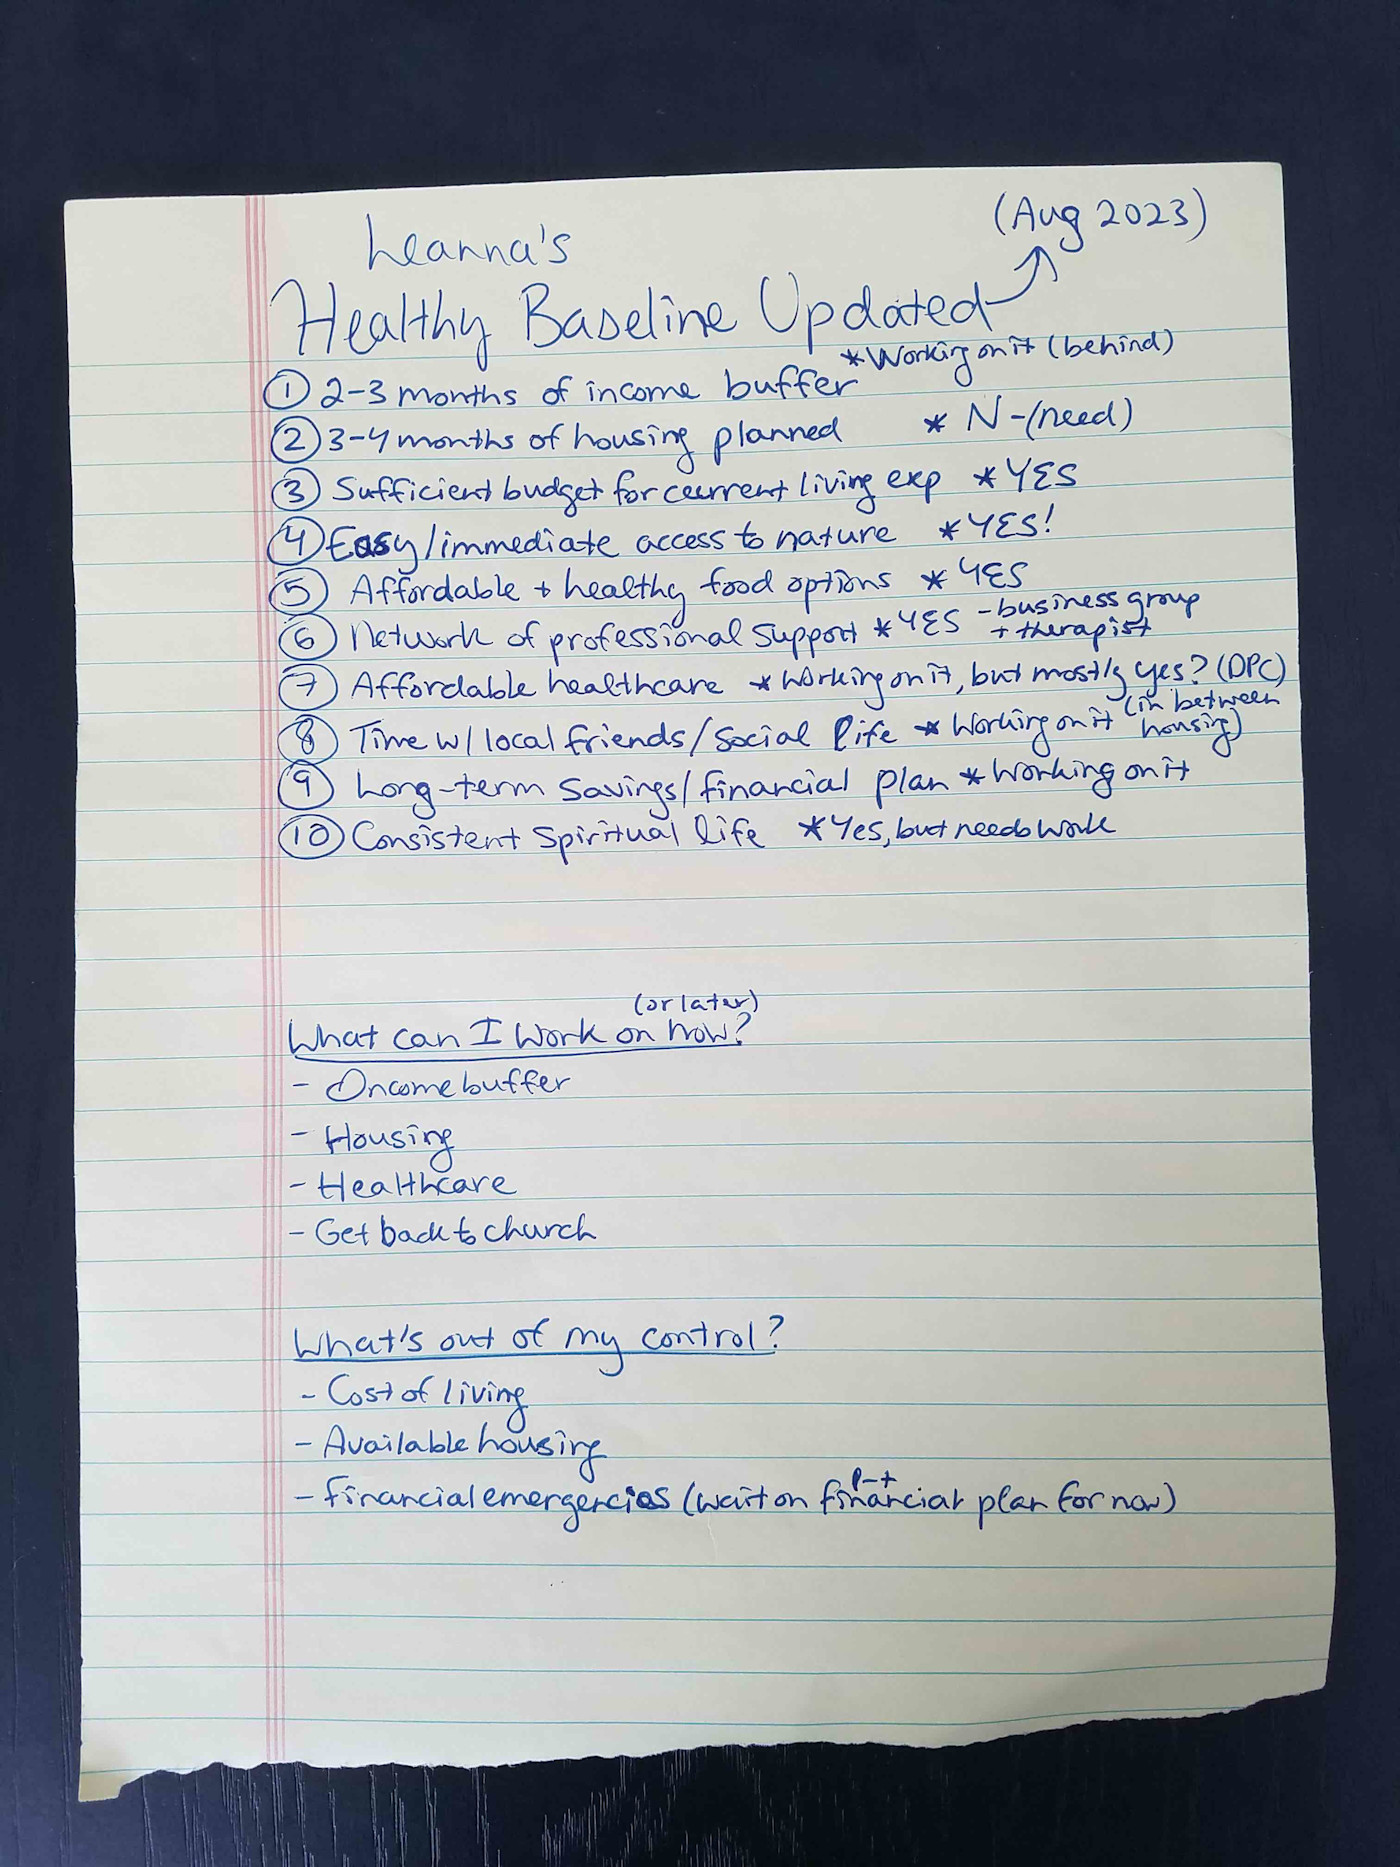 Leanna's
(Aug 2023)
Healthy Baseline Updated
① 2-3 months of income buffer *Working on it (behind)
② 3-4 months of housing planned * N-(need)
③ Sufficient budget for current living exp *YES
④ Easy/immediate access to nature *YES!
⑤ Affordable + healthy food options *YES
⑥ Network of professional support *YES -business group
+ therapist
⑦ Affordable healthcare *Working on it, but mostly yes? (DPC)
⑧ Time w/ local friends/social life *Working on it (in between
housing)
⑨ Long-term savings/financial plan *Working on it
⑩ Consistent spiritual life *Yes, but needs work
(or later)
What can I work on now?
- Income buffer
- Housing
- Healthcare
- Get back to church
What's out of my control?
- Cost of living
- Available housing
- Financial emergencies (wait on financial plan for now)